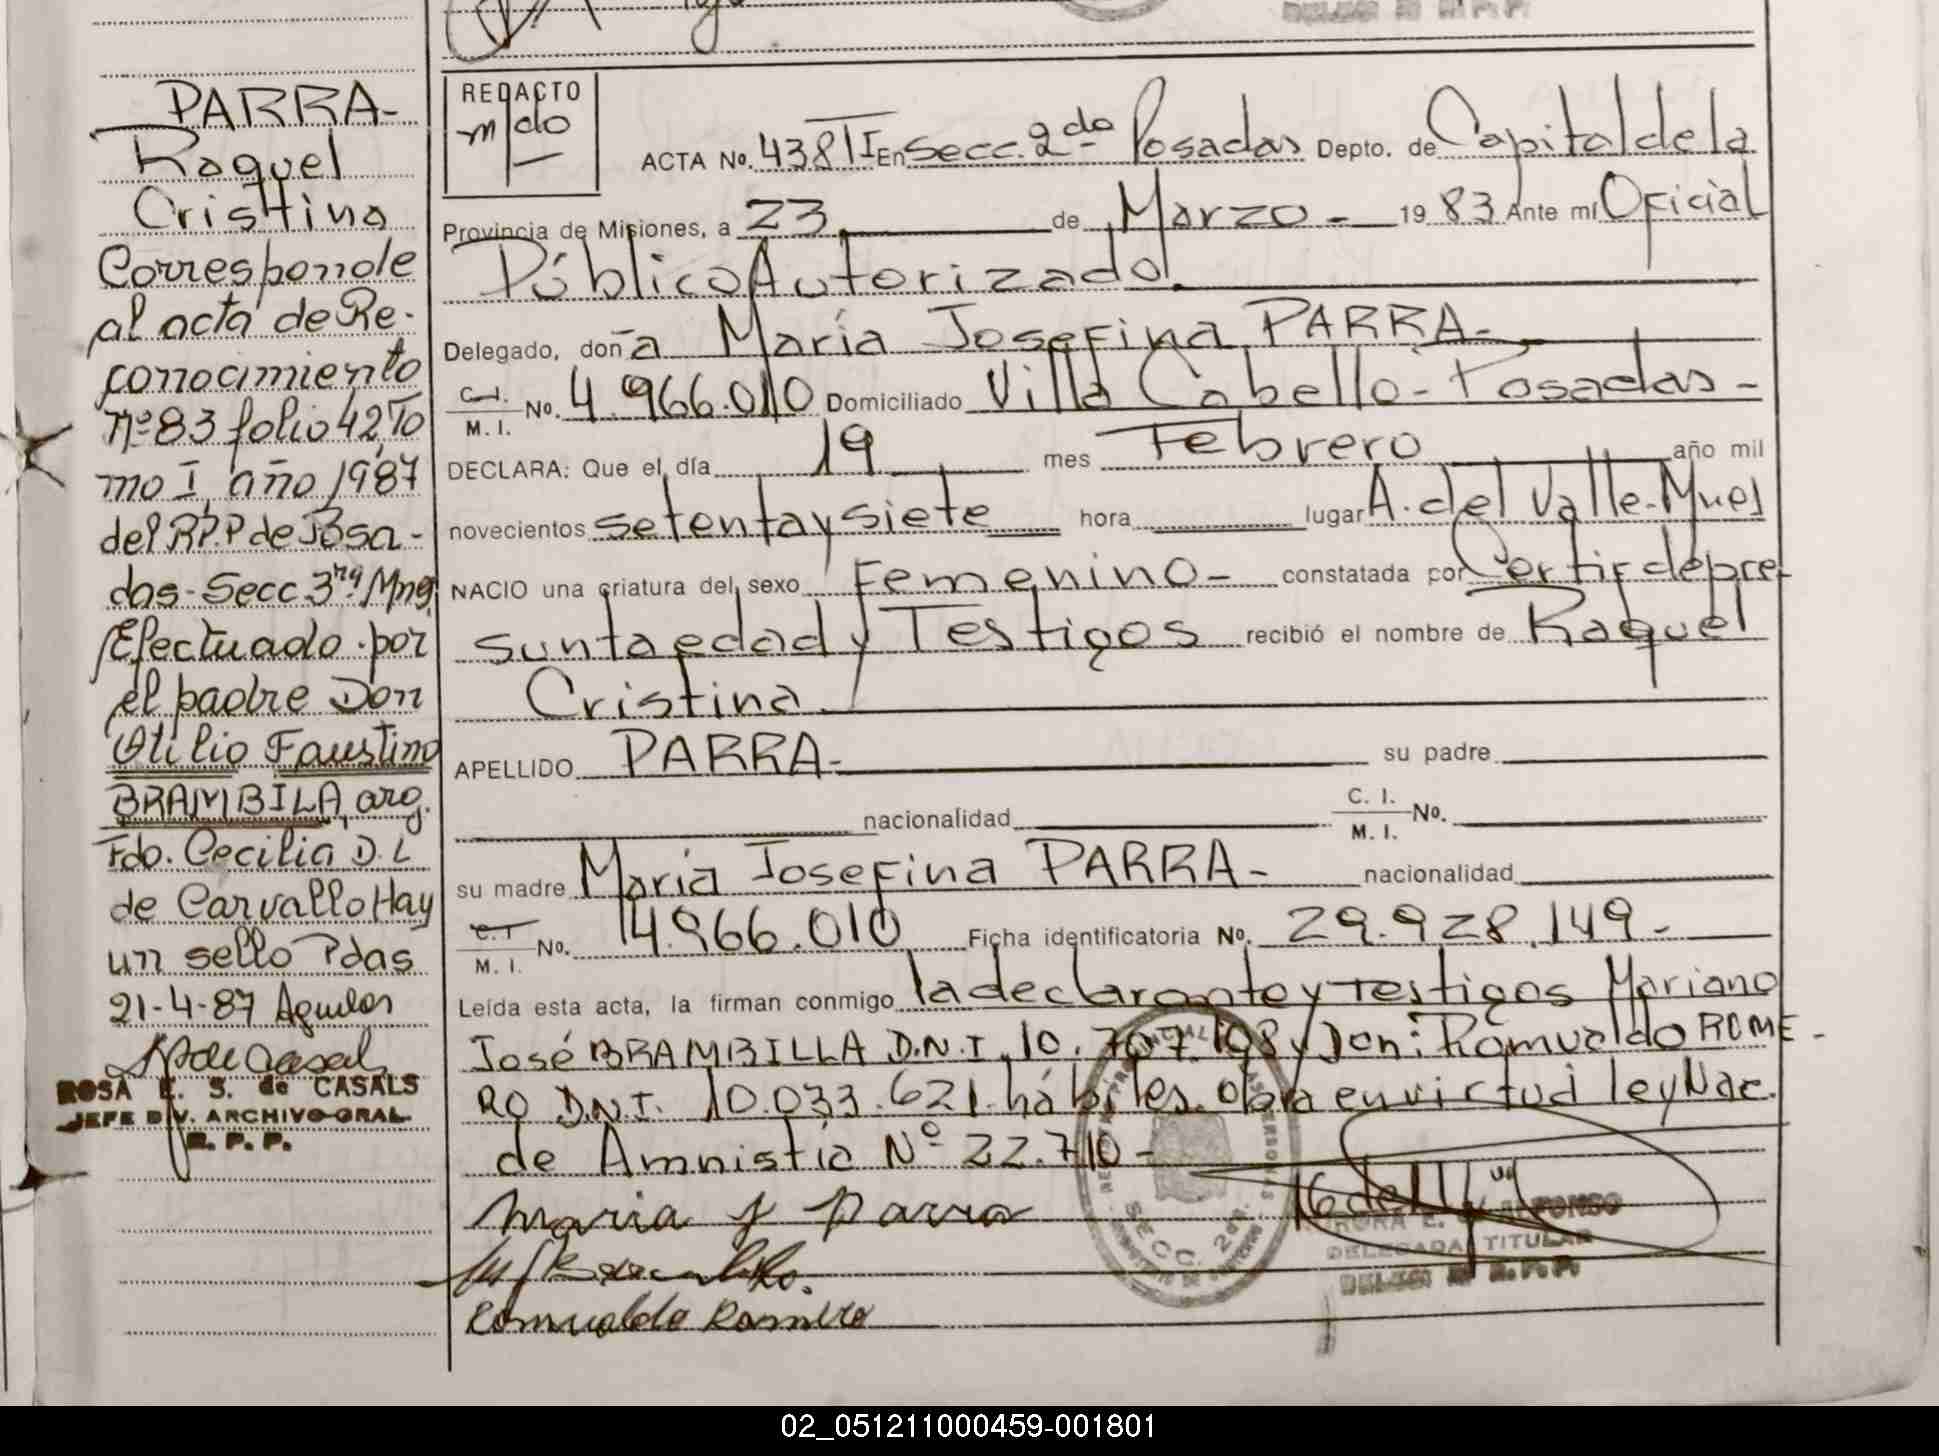 PARRA-
Raquel
Cristina
Corresponde
al acta de Re-
conocimiento
nº 83 folio 42, To
mo I, año 1987
del R.P.P de Posa-
das-Secc. 3ra Mnes
Efectuado por
el padre Don
Otilio Faustino
BRAMBILA, arg.
Fdo. Cecilia D. L
de Carvallo Hay
un sello Pdas
21-4-87 Aguilar
ROSA E. S. de CASALS
JEFE DIV. ARCHIVO GRAL.
R. P. P.
REDACTO
m/do
ACTA No. 438 TI En Secc. 2do Posadas Depto. de Capital de la
Provincia de Misiones, a 23 de Marzo - 19 83 Ante mí Oficial
Público Autorizado.
Delegado, don a María Josefina PARRA-
C.I. / M. I. No. 4.966.010 Domiciliado Villa Cabello-Posadas-
DECLARA: Que el día 19 mes Febrero año mil
novecientos setenta y siete hora lugar A. del Valle-Mnes
NACIO una criatura del sexo Femenino- constatada por Certif de pre
sunta edad y Testigos recibió el nombre de Raquel
Cristina.
APELLIDO PARRA- su padre
nacionalidad C. I. / M. I. No.
su madre María Josefina PARRA- nacionalidad
C.I / M. I. No. 4.966.010 Ficha identificatoria No. 29.928.149-
Leída esta acta, la firman conmigo la declarante y Testigos Mariano
José BRAMBILLA D.N.I. 10.707.198 y Don: Romualdo ROME-
RO D.N.I. 10.033.621. hábiles. Obra en virtud ley Nac.
de Amnistía Nº 22.710-
Maria J Parra
Romualdo Romero
SECC. 2da.
E. ALFONSO
DELEGADA TITULAR
R. P. P.
02_051211000459-001801